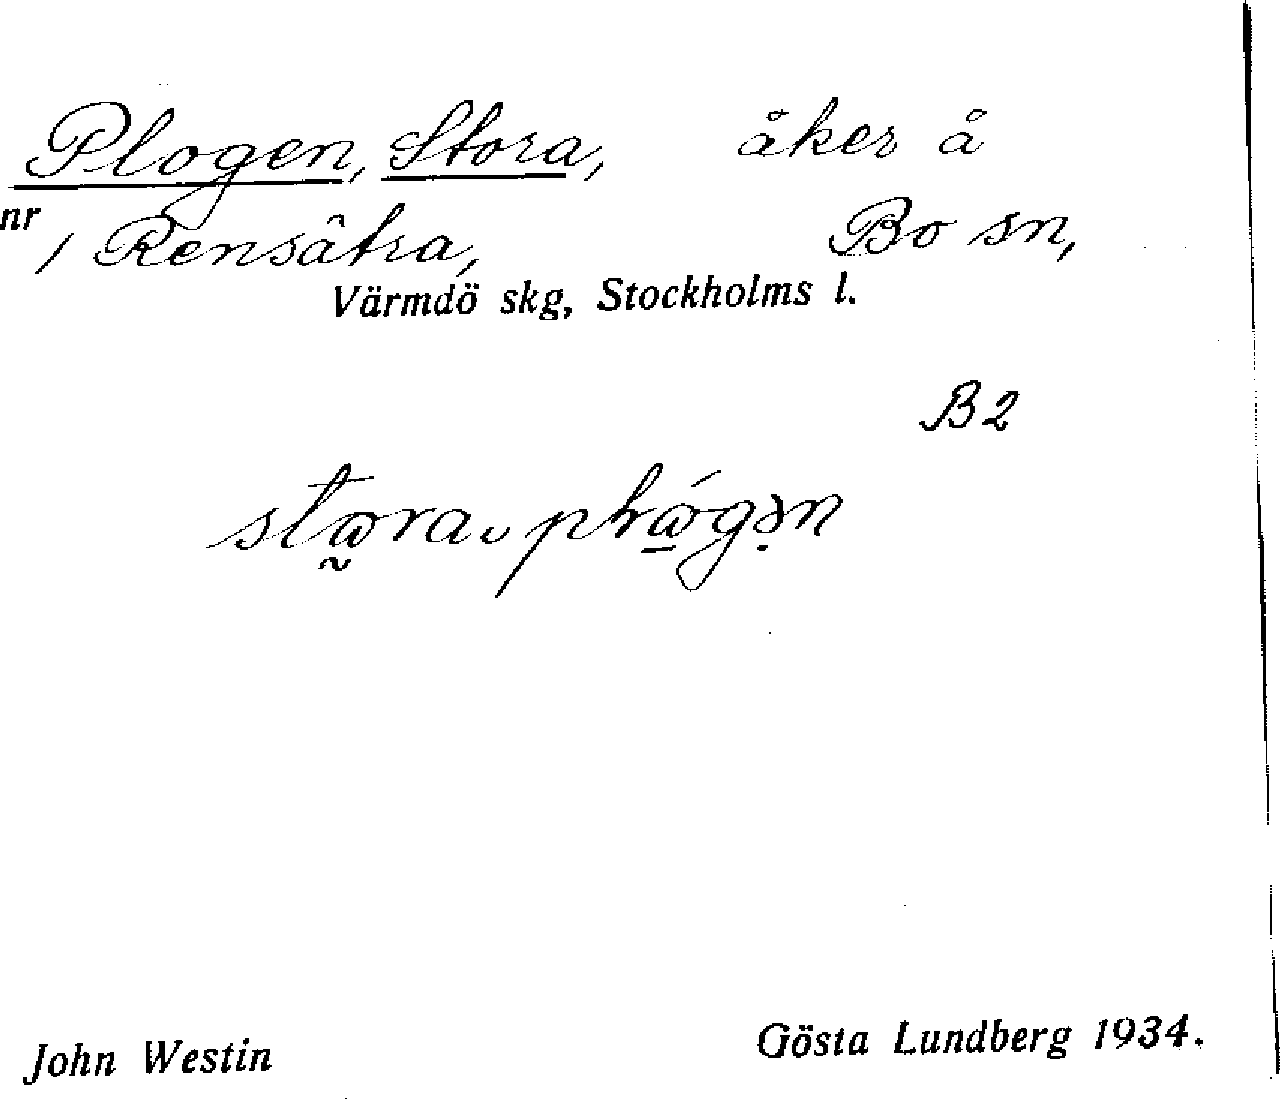 Plogen, Stora, åker å
nr 1 Rensätra, Bo sn,
Värmdö skg, Stockholms l.
B2
John Westin Gösta Lundberg 1934.